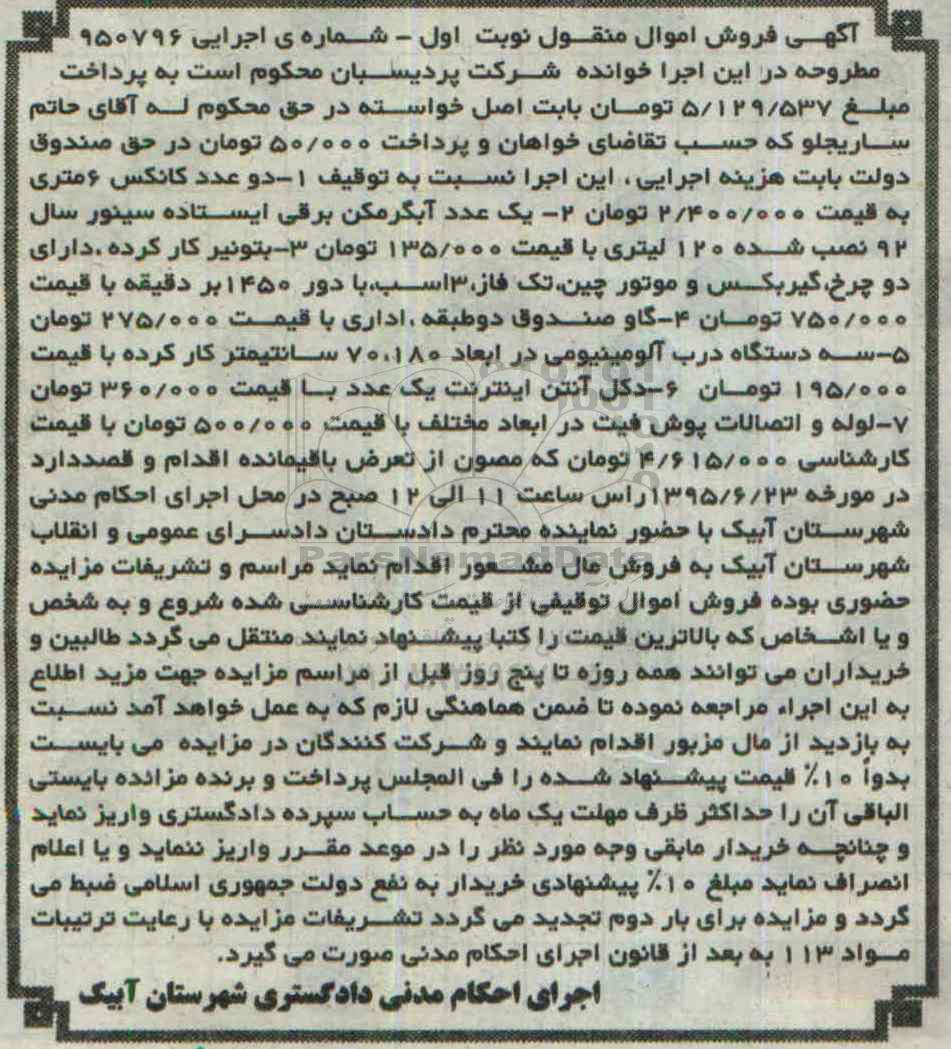 آگهی فروش اموال منقول نوبت اول - شماره ی اجرایی ۹۵۰۷۹۶
مطروحه در این اجرا خوانده شرکت پردیسبان محکوم است به پرداخت
مبلغ ۵/۱۲۹/۵۳۷ تومان بابت اصل خواسته در حق محکوم له آقای حاتم
ساریجلو که حسب تقاضای خواهان و پرداخت ۵۰/۰۰۰ تومان در حق صندوق
دولت بابت هزینه اجرایی ، این اجرا نسبت به توقیف ۱-دو عدد کانکس ۶متری
به قیمت ۲/۴۰۰/۰۰۰ تومان ۲- یک عدد آبگرمکن برقی ایستاده سینور سال
۹۲ نصب شده ۱۲۰ لیتری با قیمت ۱۳۵/۰۰۰ تومان ۳-بتونیر کار کرده ،دارای
دو چرخ،گیربکس و موتور چین،تک فاز،۳اسب،با دور ۱۴۵۰بر دقیقه با قیمت
۷۵۰/۰۰۰ تومان ۴-گاو صندوق دوطبقه ،اداری با قیمت ۲۷۵/۰۰۰ تومان
۵-سه دستگاه درب آلومینیومی در ابعاد ۷۰،۱۸۰ سانتیمتر کار کرده با قیمت
۱۹۵/۰۰۰ تومان ۶-دکل آنتن اینترنت یک عدد با قیمت ۳۶۰/۰۰۰ تومان
۷-لوله و اتصالات پوش فیت در ابعاد مختلف با قیمت ۵۰۰/۰۰۰ تومان با قیمت
کارشناسی ۴/۶۱۵/۰۰۰ تومان که مصون از تعرض باقیمانده اقدام و قصددارد
در مورخه ۱۳۹۵/۶/۲۳راس ساعت ۱۱ الی ۱۲ صبح در محل اجرای احکام مدنی
شهرستان آبیک با حضور نماینده محترم دادستان دادسرای عمومی و انقلاب
شهرستان آبیک به فروش مال مشعور اقدام نماید مراسم و تشریفات مزایده
حضوری بوده فروش اموال توقیفی از قیمت کارشناسی شده شروع و به شخص
و یا اشخاص که بالاترین قیمت را کتبا پیشنهاد نمایند منتقل می گردد طالبین و
خریداران می توانند همه روزه تا پنج روز قبل از مراسم مزایده جهت مزید اطلاع
به این اجراء مراجعه نموده تا ضمن هماهنگی لازم که به عمل خواهد آمد نسبت
به بازدید از مال مزبور اقدام نمایند و شرکت کنندگان در مزایده می بایست
بدواً ۱۰٪ قیمت پیشنهاد شده را فی المجلس پرداخت و برنده مزائده بایستی
الباقی آن را حداکثر ظرف مهلت یک ماه به حساب سپرده دادگستری واریز نماید
و چنانچه خریدار مابقی وجه مورد نظر را در موعد مقرر واریز ننماید و یا اعلام
انصراف نماید مبلغ ۱۰٪ پیشنهادی خریدار به نفع دولت جمهوری اسلامی ضبط می
گردد و مزایده برای بار دوم تجدید می گردد تشریفات مزایده با رعایت ترتیبات
مواد ۱۱۳ به بعد از قانون اجرای احکام مدنی صورت می گیرد.
اجرای احکام مدنی دادگستری شهرستان آبیک
ParsNamadData